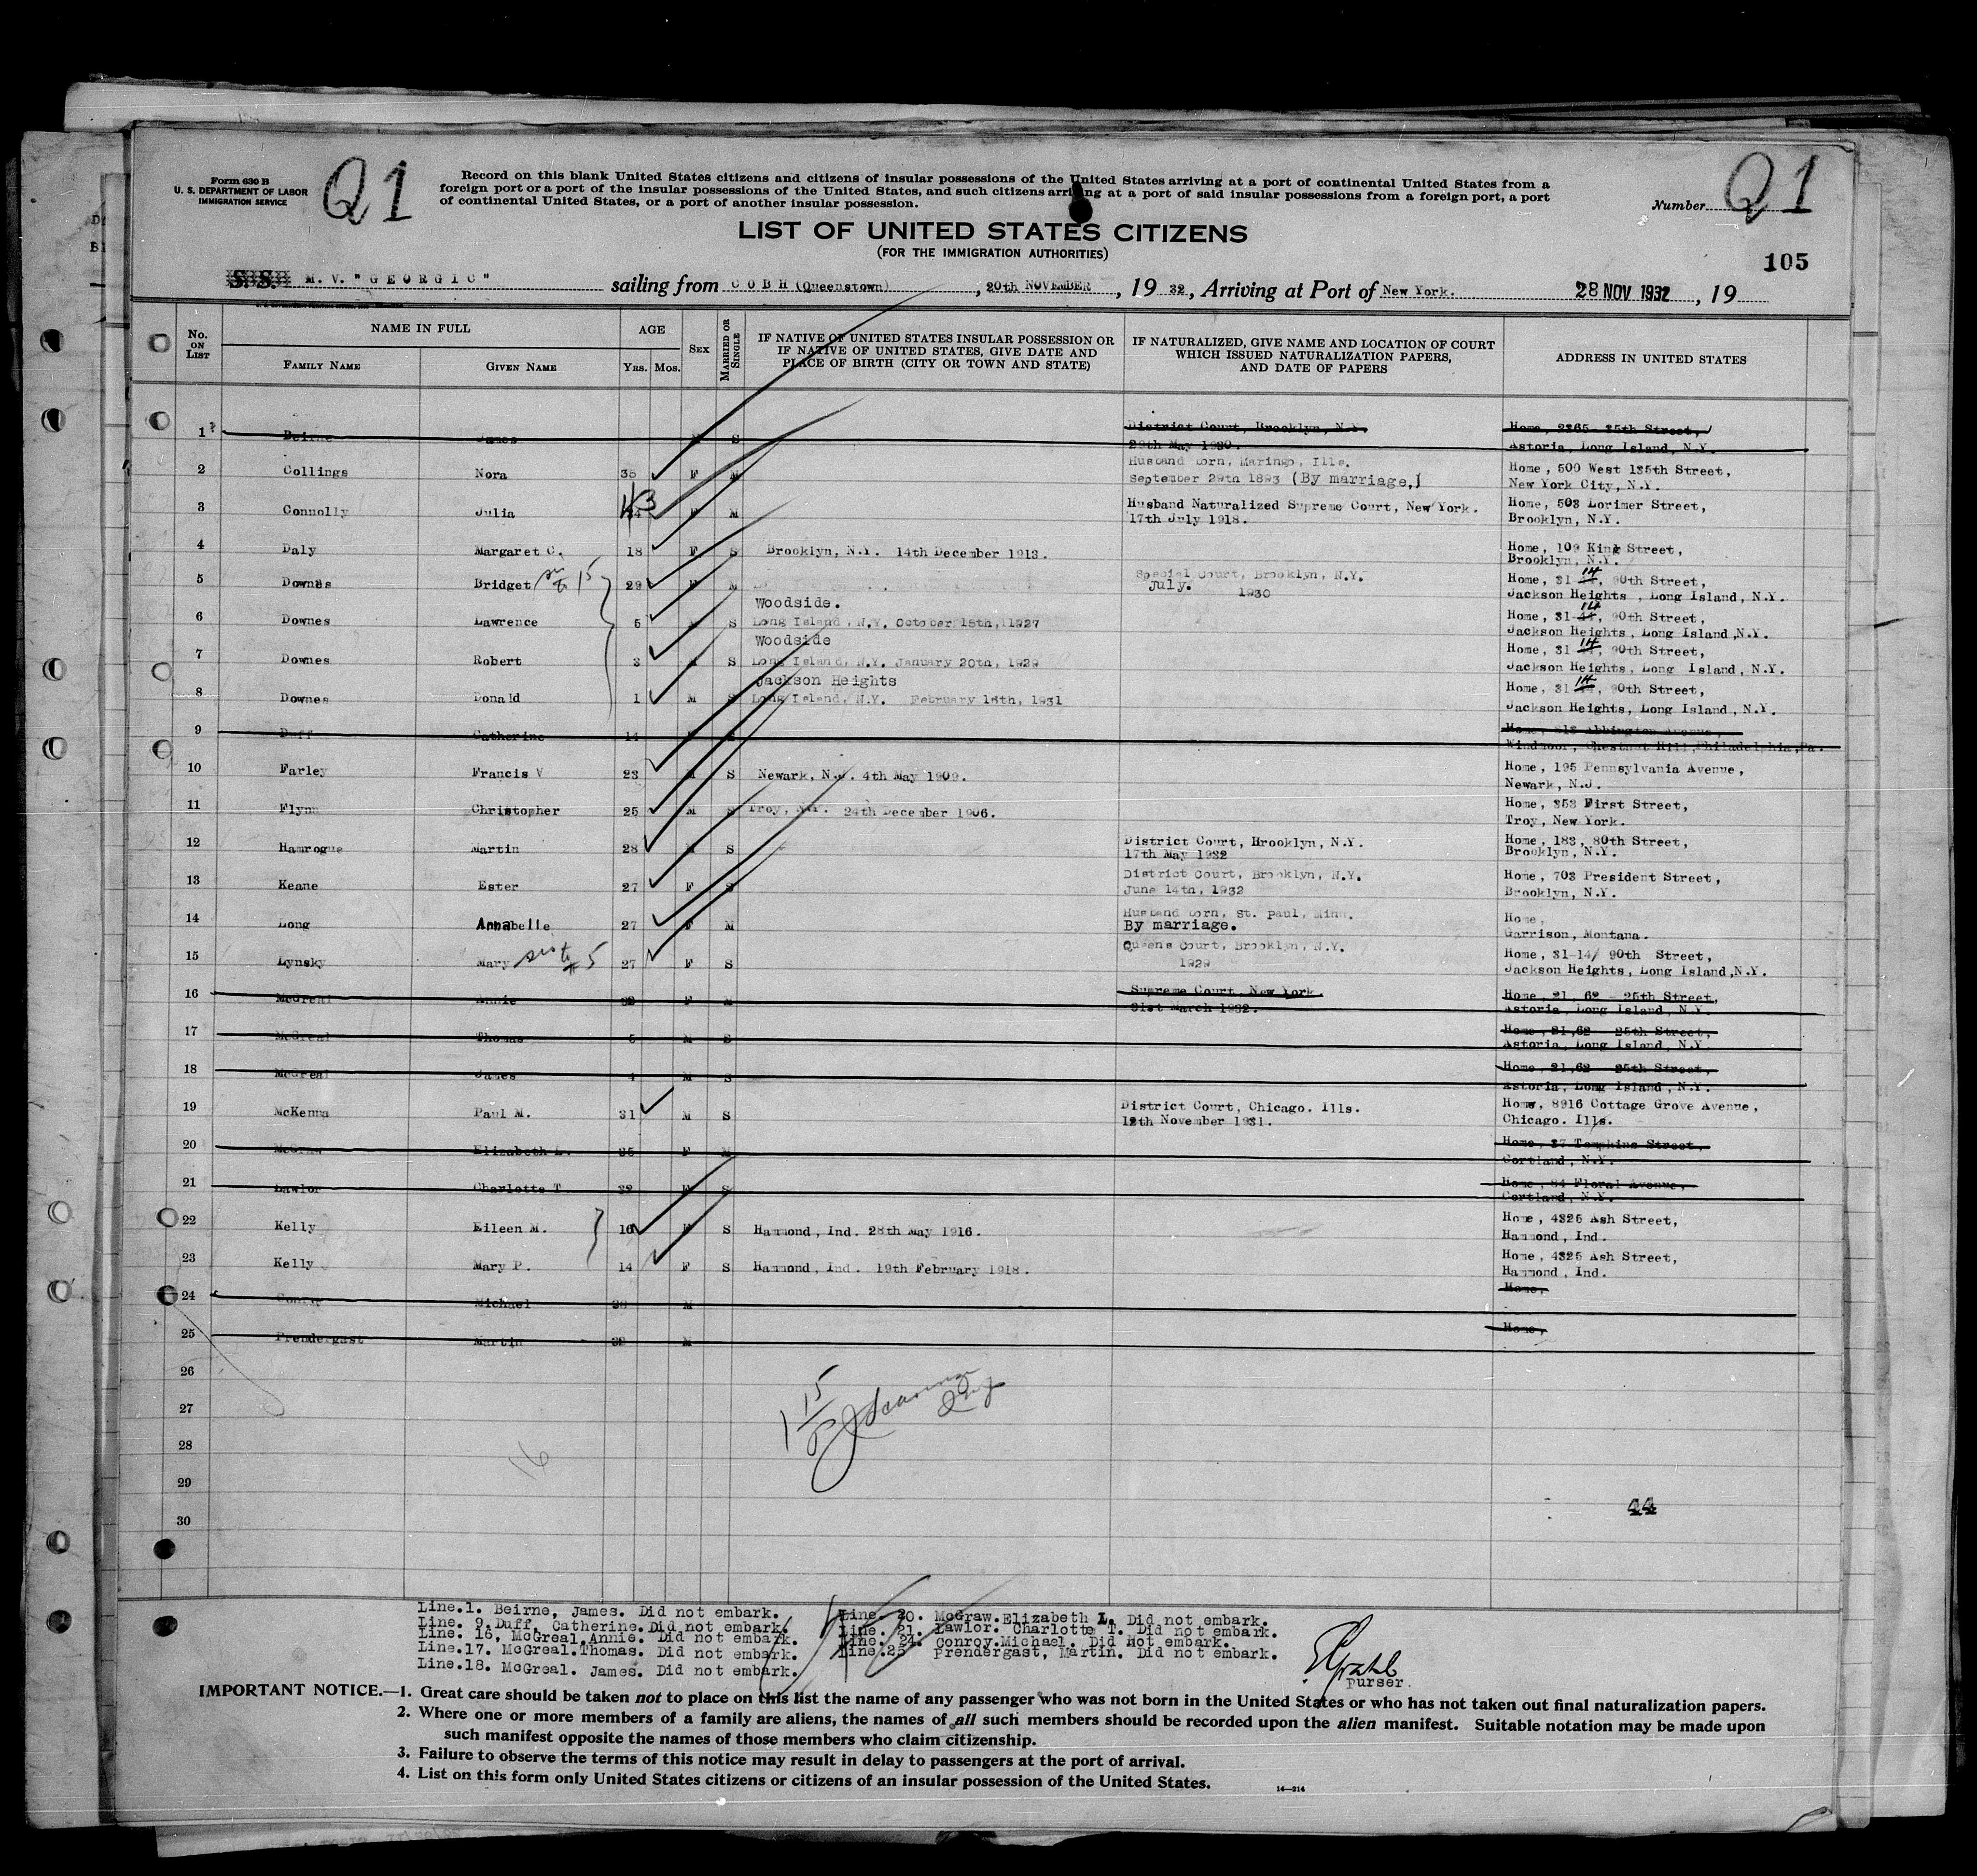 Form 630 B
U. S. DEPARTMENT OF LABOR
IMMIGRATION SERVICE
Q1
Record on this blank United States citizens and citizens of insular possessions of the United States arriving at a port of continental United States from a
foreign port or a port of the insular possessions of the United States, and such citizens arriving at a port of said insular possessions from a foreign port, a port
of continental United States, or a port of another insular possession.
Number Q1
LIST OF UNITED STATES CITIZENS
(FOR THE IMMIGRATION AUTHORITIES)
105
S. S. M. V. "GEORGIC" sailing from COBH (Queenstown), 20th NOVEMBER, 1932, Arriving at Port of New York. 28 NOV 1932, 19
No. ON LIST
NAME IN FULL
FAMILY NAME
GIVEN NAME
AGE
YRS. MOS.
SEX
MARRIED OR SINGLE
IF NATIVE OF UNITED STATES INSULAR POSSESSION OR
IF NATIVE OF UNITED STATES, GIVE DATE AND
PLACE OF BIRTH (CITY OR TOWN AND STATE)
IF NATURALIZED, GIVE NAME AND LOCATION OF COURT
WHICH ISSUED NATURALIZATION PAPERS,
AND DATE OF PAPERS
ADDRESS IN UNITED STATES
1 Beirne James S District Court, Brooklyn, N.Y. Home, 2365- 35th Street,
29th May 1930. Astoria, Long Island, N.Y.
2 Collings Nora 35 F M Husband born, Maringo, Ills. Home, 500 West 135th Street,
September 29th 1893 (By marriage,) New York City, N.Y.
3 Connolly Julia 43 F M Husband Naturalized Supreme Court, New York. Home, 503 Lorimer Street,
17th July 1918. Brooklyn, N.Y.
4 Daly Margaret C. 18 F S Brooklyn, N.Y. 14th December 1913. Home, 109 King Street,
Brooklyn, N.Y.
5 Downes Bridget 15 29 F M Special Court, Brooklyn, N.Y. Home, 31 14, 90th Street,
July. 1930 Jackson Heights, Long Island, N.Y.
Woodside.
6 Downes Lawrence 5 M S Long Island, N.Y. October 15th, 1927 Home, 31-14, 90th Street,
Jackson Heights, Long Island, N.Y.
Woodside
7 Downes Robert 3 M S Long Island, N.Y. January 20th, 1929 Home, 31 14, 90th Street,
Jackson Heights, Long Island, N.Y.
Jackson Heights
8 Downes Donald 1 M S Long Island, N.Y. February 16th, 1931 Home, 31 14, 90th Street,
Jackson Heights, Long Island, N.Y.
9 Duff Catherine 14 Home, 215 Abbington Avenue,
Windmoor, Chestnut Hill, Philadelphia, Pa.
10 Farley Francis V 23 M S Newark, N.J. 4th May 1909. Home, 195 Pennsylvania Avenue,
Newark, N.J.
11 Flynn Christopher 25 M S Troy, N.Y. 24th December 1906. Home, 353 First Street,
Troy, New York.
12 Hamrogue Martin 28 M S District Court, Brooklyn, N.Y. Home, 183, 80th Street,
17th May 1932 Brooklyn, N.Y.
13 Keane Ester 27 F S District Court, Brooklyn, N.Y. Home, 703 President Street,
June 14th, 1932 Brooklyn, N.Y.
14 Long Annabelle 27 F M Husband born, St. Paul, Minn. Home,
By marriage. Garrison, Montana.
15 Lynsky Mary sis to #5 27 F S Queens Court, Brooklyn, N.Y. Home, 31-14/ 90th Street,
1929 Jackson Heights, Long Island, N.Y.
16 McGreal Annie 32 F M Supreme Court, New York Home, 21, 62 - 25th Street,
31st March 1932. Astoria, Long Island, N.Y.
17 McGreal Thomas 5 M S Home, 21,62 - 25th Street,
Astoria, Long Island, N.Y.
18 McGreal James 4 M S Home, 21,62 - 25th Street,
Astoria, Long Island, N.Y.
19 McKenna Paul M. 31 M S District Court, Chicago. Ills. Home, 8916 Cottage Grove Avenue,
12th November 1931. Chicago. Ills.
20 McGraw Elizabeth L. 35 F M Home, 37 Tompkins Street,
Cortland, N.Y.
21 Lawlor Charlotte T. 32 F S Home, 64 Floral Avenue,
Cortland, N.Y.
22 Kelly Eileen M. 16 F S Hammond, Ind. 28th May 1916. Home, 4325 Ash Street,
Hammond, Ind.
23 Kelly Mary P. 14 F S Hammond, Ind. 19th February 1918. Home, 4325 Ash Street,
Hammond, Ind.
24 Conroy Michael M Home,
25 Prendergast Martin 32 M Home,
26
27
28
29
30
15
16
44
Line.1. Beirne, James. Did not embark.
Line. 9.Duff, Catherine. Did not embark.
Line. 16, McGreal.Annie. Did not embark.
Line.17. McGreal.Thomas. Did not embark.
Line.18. McGreal. James. Did not embark.
Line. 20. McGraw.Elizabeth L. Did not embark.
Line. 21. Lawlor. Charlotte T. Did not embark.
Line. 24. Conroy.Michael. Did not embark.
Line.25 Prendergast, Martin. Did not embark.
Purser.
IMPORTANT NOTICE.—1. Great care should be taken not to place on this list the name of any passenger who was not born in the United States or who has not taken out final naturalization papers.
2. Where one or more members of a family are aliens, the names of all such members should be recorded upon the alien manifest. Suitable notation may be made upon
such manifest opposite the names of those members who claim citizenship.
3. Failure to observe the terms of this notice may result in delay to passengers at the port of arrival.
4. List on this form only United States citizens or citizens of an insular possession of the United States.
14—214